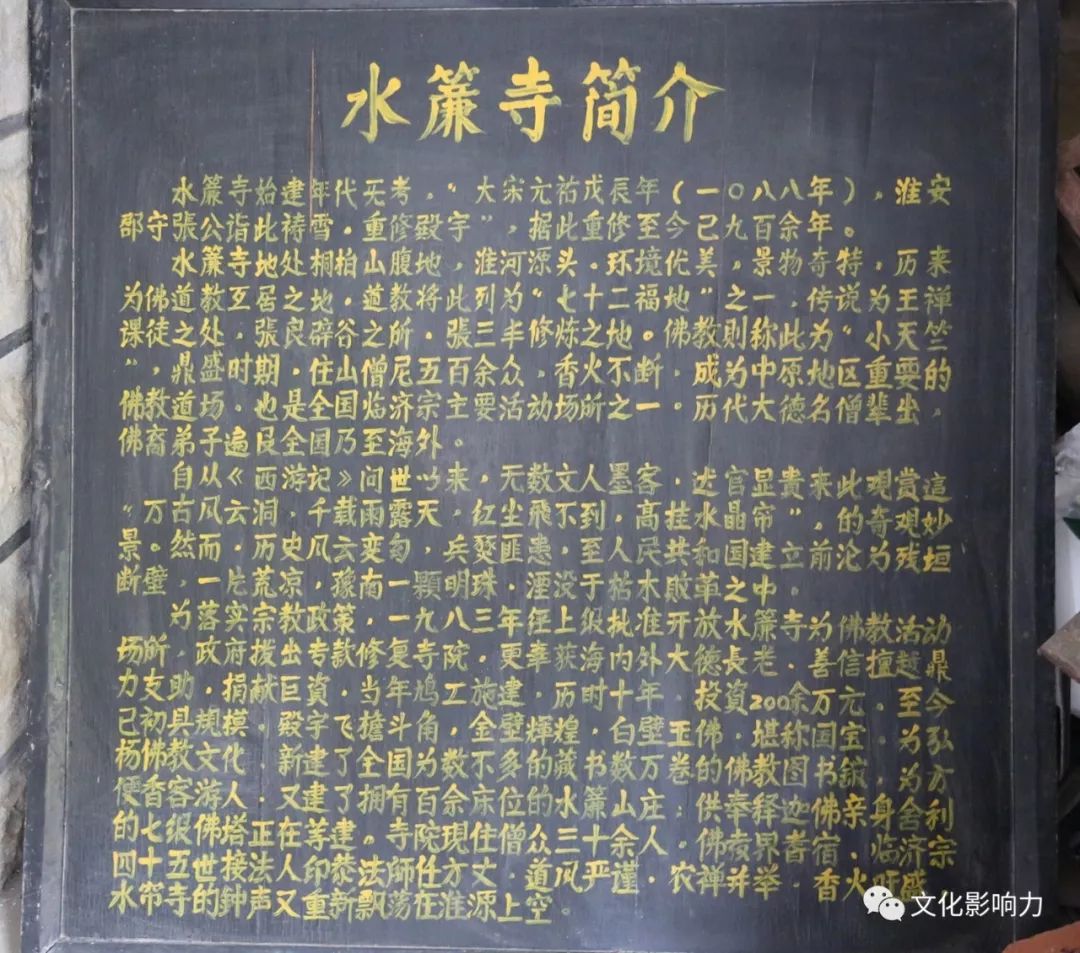 水簾寺简介
水簾寺始建年代无考。“大宋元祐戊辰年(一〇八八年),淮安
郡守張公诣此祷雪,重修殿宇”,据此重修至今已九百余年。
水簾寺地处桐柏山腹地,淮河源头,环境优美,景物奇特,历来
为佛道教互居之地,道教将此列为“七十二福地”之一,传说为王禅
课徒之处,張良辟谷之所,張三丰修炼之地。佛教则称此为“小天竺
”,鼎盛时期,住山僧尼五百余众,香火不断,成为中原地区重要的
佛教道场,也是全国临济宗主要活动场所之一。历代大德名僧辈出,
佛裔弟子遍及全国乃至海外。
自从《西游记》问世以来,无数文人墨客,达官显貴来此观赏這
“万古风云洞,千载雨露天,红尘飛不到,高挂水晶帘”。的奇观妙
景。然而,历史风云变匈,兵燹匪患,至人民共和国建立前沦为残垣
断壁,一片荒凉,豫南一顆明珠,湮没于枯木敗草之中。
为落实宗教政策,一九八三年径上级批准开放水簾寺为佛教活动
场所,政府拨出专款修复寺院,更幸获海内外大德長老、善信擅越鼎
力支助,捐献巨資,当年鸠工施建,历时十年,投資200余万元,至今
已初具規模,殿宇飞擔斗角,金壁輝煌,白壁玉佛,堪称国宝。为弘
杨佛教文化,新建了全国为数不多的藏书数万卷的佛教图书館,为方
便香客游人,又建了拥有百余床位的水簾山庄;供奉释迦佛亲身舍利
的七级佛塔正在筹建。寺院現住僧众三十余人。佛教界耆宿,临济宗
四十五世接法人印恭法師任方丈,道风严谨,农禅并举,香火旺盛,
水帘寺的钟声又重新飘荡在淮源上空。
文化影响力